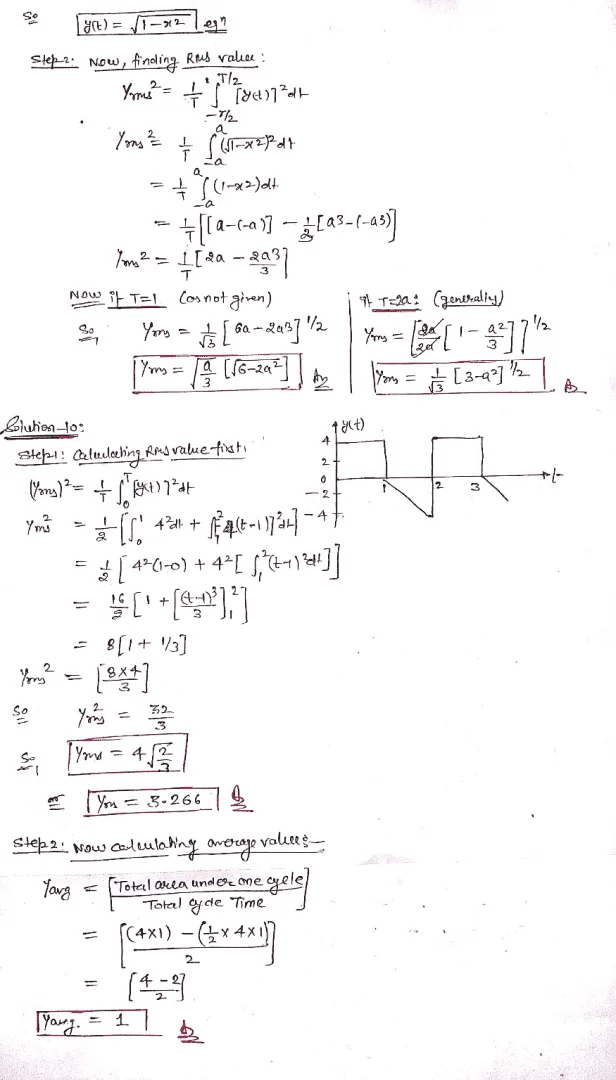 So y(t) = √1-x2 eqn
Step-2: Now, finding Rms value:
Yrms² = 1/T ∫_{-T/2}^{T/2} [y(t)]²dt
Yrms² = 1/T ∫_{-a}^{a} (√1-x2)²dt
= 1/T ∫_{-a}^{a} (1-x2)dt
= 1/T [[a-(-a)] - 1/3[a3-(-a3)]
Yrms² = 1/T [2a - 2a3/3]
Now if T=1 (as not given)
So, Yrms = 1/√3 [6a-2a3]^1/2
Yrms = √a/3 [√6-2a²] Ans
If T=2a: (generally)
Yrms = [2a/2a [1 - a²/3]]^1/2
Yrms = 1/√3 [3-a²]^1/2 Ans
Solution-10:
Step-1: Calculating RMS value first:
y(t)
4
2
0
-2
-4
1 2 3 t
(Yrms)² = 1/T ∫_0^T [y(t)]²dt
Yrms² = 1/2 [∫_0^1 4²dt + ∫_1^2 [-4(t-1)]²dt]
= 1/2 [4²(1-0) + 4²[∫_1^2 (t-1)²dt]]
= 16/2 [1 + [(t-1)³/3]_1^2]
= 8[1 + 1/3]
Yrms² = [8×4/3]
So Yrms² = 32/3
So, Yrms = 4√2/3
or Yrms = 3.266 Ans
Step2: Now calculating average value:
Yavg = [Total area under one cycle / Total cycle Time]
= [(4×1) - (1/2 × 4×1)] / 2
= [4-2/2]
Yavg. = 1 Ans